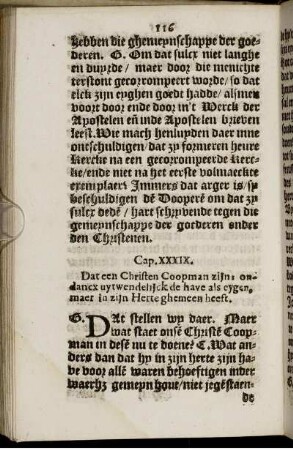 116
hebben die ghemeynschappe der goe-
deren. G. Om dat sulcx niet langhe
en duyrde / maer door die menichte
terstont gecorrompeert worde / so dat
elck zijn eyghen goedt hadde / alsmen
voort door ende door in't Werck der
Apostelen eñ inde Apostelen brieven
leest. Wie mach henluyden daer inne
ontschuldigen / dat zy formeren heure
Kercke na een gecorrompeerde Kerc-
ke / ende niet na het eerste volmaeckte
exemplaer? Immers dat arger is / sy
beschuldigen de Doopers̄ om dat zy
sulcx dedē / hart schryvende tegen die
gemeynschappe der goederen onder
den Christenen.
Cap. XXXIX.
Dat een Christen Coopman zijn, on-
dancx uytwendelijck de have als eygen,
maer in zijn Herte ghemeen heeft.
G. DAt stellen wy daer. Maer
wat staet onsē Christē Coop-
man in desē nu te doene? C. Wat an-
ders dan dat hy in zijn herte zijn ha-
ve voor allē waren behoeftigen inder
waerhz gemeyn hout / niet jegēstaen-
de